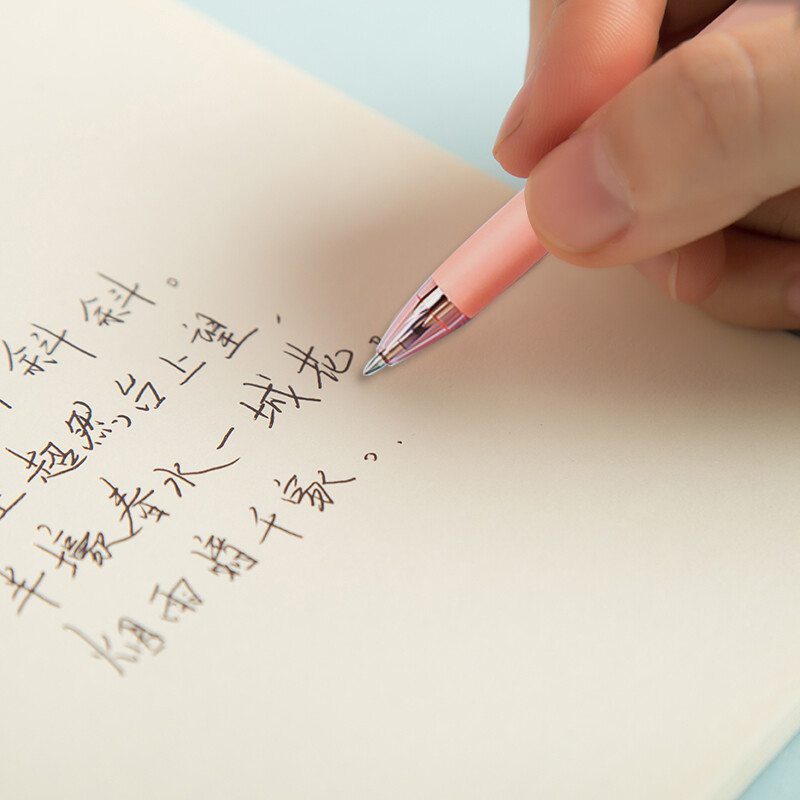 斜斜。
超然台上望,
半壕春水一城花。
烟雨暗千家。